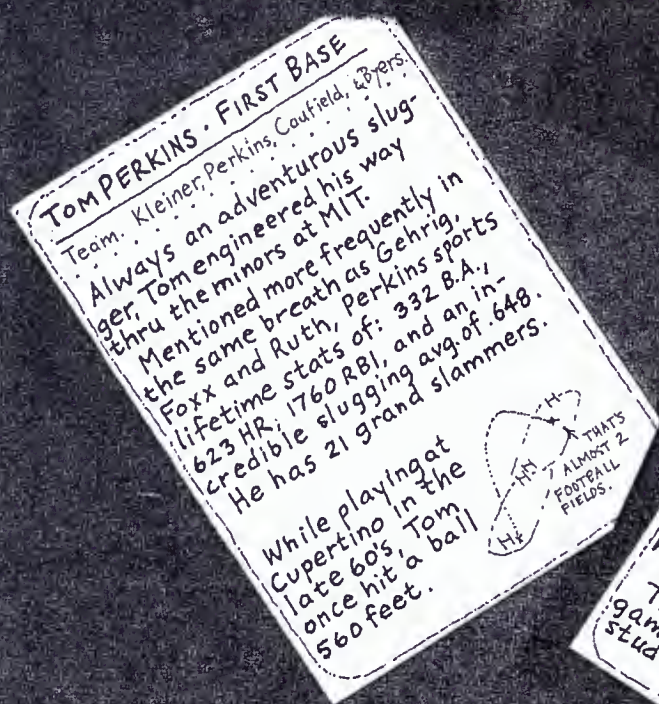 TOM PERKINS • FIRST BASE
Team. Kleiner, Perkins, Caufield, & Byers.
Always an adventurous slug-
ger, Tom engineered his way
thru the minors at MIT.
Mentioned more frequently in
the same breath as Gehrig,
Foxx and Ruth, Perkins sports
lifetime stats of: 332 B.A.,
623 HR; 1760 RBI, and an in-
credible slugging avg. of .648.
He has 21 grand slammers.
While playing at
Cupertino in the
late 60's, Tom
once hit a ball
560 feet.
THAT'S
ALMOST 2
FOOTBALL
FIELDS.
gam
stud